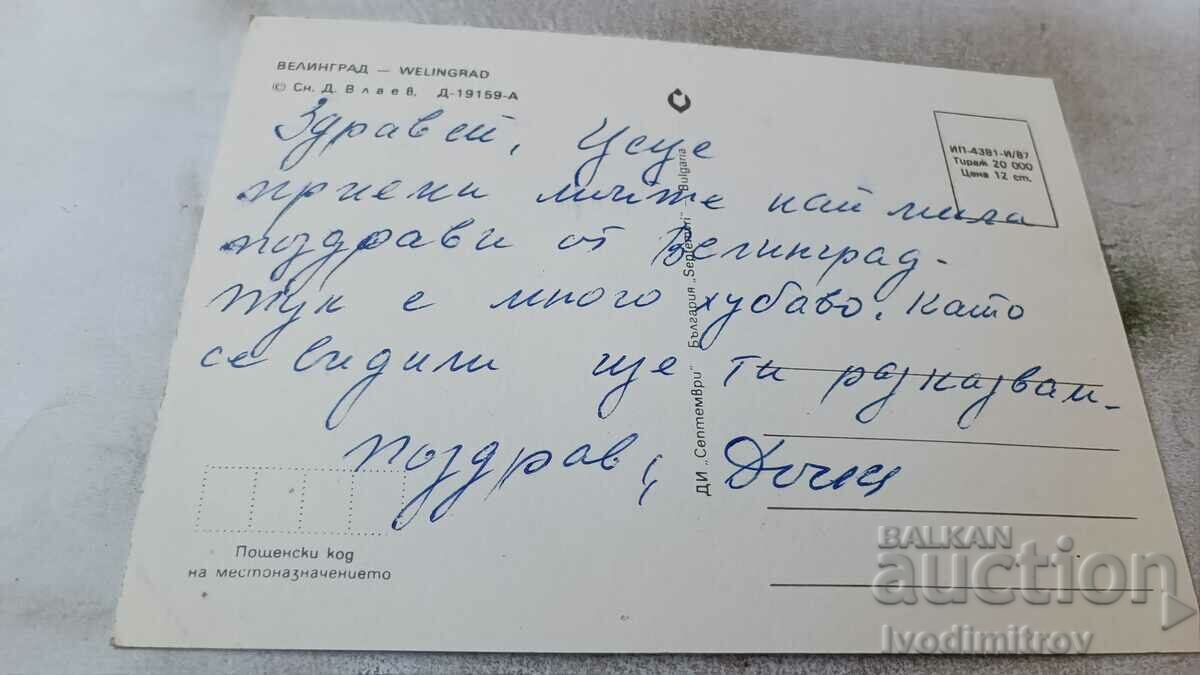 ВЕЛИНГРАД — WELINGRAD
© Сн. Д. Влаев, Д-19159-А
ИП-4381-И/87
Тираж 20 000
Цена 12 ст.
Здравей, Цеце
приеми моите най мила
поздрави от Велинград.
Тук е много хубаво. Като
се видили ще ти разказвам.
поздрав,
ДИ „Септември" България "Septemvri" - Bulgaria
Пощенски код
на местоназначението
BALKAN
auction
Ivodimitrov